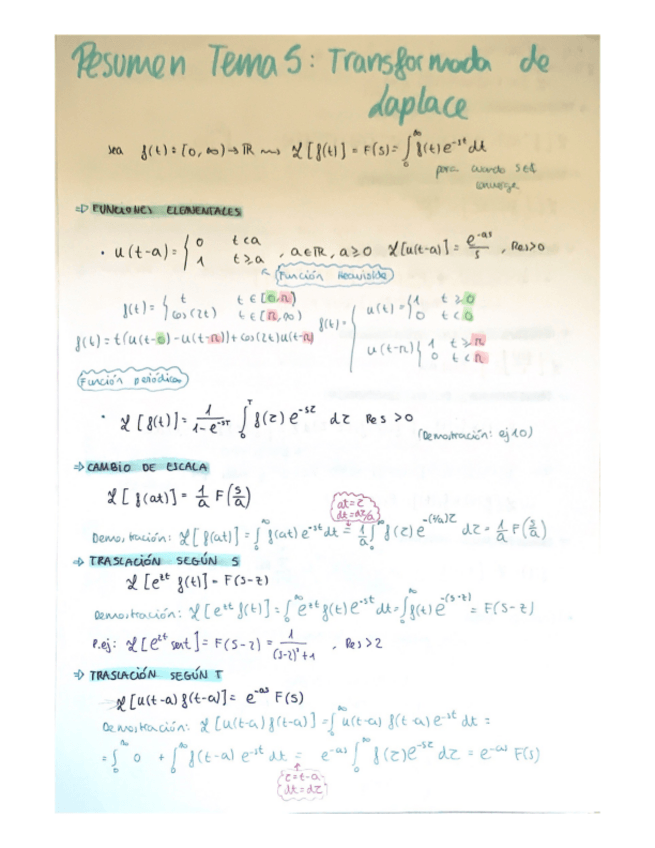 Resumen Tema 5: Transformada de
Laplace
sea f(t): [0, ∞) → ℝ ⇝ ℒ[f(t)] = F(s) = ∫₀^∞ f(t) e^{-st} dt
para cuando s∈ℂ
converge
⇒ FUNCIONES ELEMENTALES
• u(t-a) = { 0 t<a ; 1 t≥a , a∈ℝ, a≥0 ℒ[u(t-a)] = e^{-as}/s , Re s>0
Función Heaviside
f(t) = { t t∈[0,π) ; cos(2t) t∈[π,∞)
f(t) = t(u(t-0) - u(t-π)) + cos(2t)u(t-π)
f(t) = { u(t) = { 1 t≥0 ; 0 t<0
u(t-π) { 1 t≥π ; 0 t<π
Función periódica
• ℒ[f(t)] = 1/(1-e^{-sT}) ∫₀^T f(τ) e^{-sτ} dτ Re s >0
(Demostración: ej 10)
⇒ CAMBIO DE ESCALA
ℒ[f(at)] = 1/a F(s/a)
at=τ
dt=dτ/a
Demostración: ℒ[f(at)] = ∫₀^∞ f(at) e^{-st} dt = 1/a ∫₀^∞ f(τ) e^{-(s/a)τ} dτ = 1/a F(s/a)
⇒ TRASLACIÓN SEGÚN S
ℒ[e^{zt} f(t)] = F(s-z)
Demostración: ℒ[e^{zt} f(t)] = ∫₀^∞ e^{zt} f(t) e^{-st} dt = ∫₀^∞ f(t) e^{-(s-z)} = F(s-z)
P.ej: ℒ[e^{2t} sent] = F(s-2) = 1/((s-2)²+1) , Re s>2
⇒ TRASLACIÓN SEGÚN T
ℒ[u(t-a) f(t-a)] = e^{-as} F(s)
Demostración: ℒ[u(t-a) f(t-a)] = ∫₀^∞ u(t-a) f(t-a) e^{-st} dt =
= ∫₀^∞ 0 + ∫₀^∞ f(t-a) e^{-st} dt = e^{-as} ∫₀^∞ f(τ) e^{-sτ} dτ = e^{-as} F(s)
τ=t-a
dt=dτ